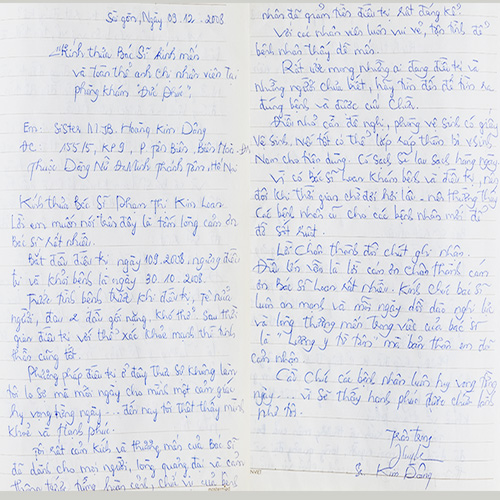 Sài gòn, Ngày 09.12.2008
"Kính thưa Bác Sĩ kính mến
và toàn thể anh chị nhân viên tại
phòng khám "Đức Phúc".
Em: Sister M JB. Hoàng Kim Dòng
ĐC: 155/5, KP9, P Tân Biên, Biên Hòa-ĐN
Thuộc Dòng Nữ Đaminh Thánh Tâm, Hố Nai
Kính thưa Bác Sĩ Phạm Thị Kim Loan
Lời em muốn nói trên đây là tấm lòng cám ơn
Bác Sĩ rất nhiều.
Bắt đầu điều trị ngày 1.09.2008. ngừng điều
trị và khỏi bệnh là ngày 30.10.2008.
Trước tình bệnh thưa khi điều trị, tê nửa
người, đau 2 đầu gối nặng. Khó thở. Sau thời
gian điều trị với thể xác khỏe mạnh thì tinh
thần cũng tốt.
Phương pháp điều trị ở đây thưa Sĩ không làm
tôi lo sợ mà mỗi ngày cho mình một cảm giác
hy vọng hằng ngày... đến nay tôi thật thấy mình
khoẻ và hạnh phúc.
Tôi rất cảm kích và thương mến của Bác Sĩ
đã dành cho mọi người, lòng quảng đại và cảm
thông trước từng hoàn cảnh, chi vì của bệnh
nhân đã giảm tiền điều trị rất đáng kể.
Với các nhân viên luôn vui vẻ, tận tình để
bệnh nhân thấy dễ mến.
Rất ước mong những ai đang điều trị và
những người chưa biết, hãy tìm đến để tìm ra
đúng bệnh và được cứu chữa.
Điều như cần đề nghị, phòng vệ sinh có giấy
vệ sinh. Nơi tốt có thể lắp ráp thêm bì vệ sinh
Nam cho tiện dùng. Có sạch sẽ lau sạch hằng ngày.
Vì có Bác Sĩ Loan khám bệnh và điều trị, nên
đôi khi thời gian chờ đợi hơi lâu - nên thường thấy
Các bệnh nhân cũ cho các bệnh nhân mới để
đỡ sốt ruột.
Lời chân thành đôi chút ghi nhận.
Điều lớn vẫn là lời cám ơn chân thành cám
ơn Bác Sĩ Loan rất nhiều. Kính chúc bác sĩ
luôn an mạnh và mỗi ngày dồi dào nghị lực
và lòng thương mến trong việc của bác sĩ
là "lương y từ tâm" mà bản thân em đã
cảm nhận.
Cầu chúc các bệnh nhân luôn hy vọng từng
ngày... vì sẽ thấy hạnh phúc được chữa bệnh
như tôi.
Trân trọng
Sr Kim Dòng